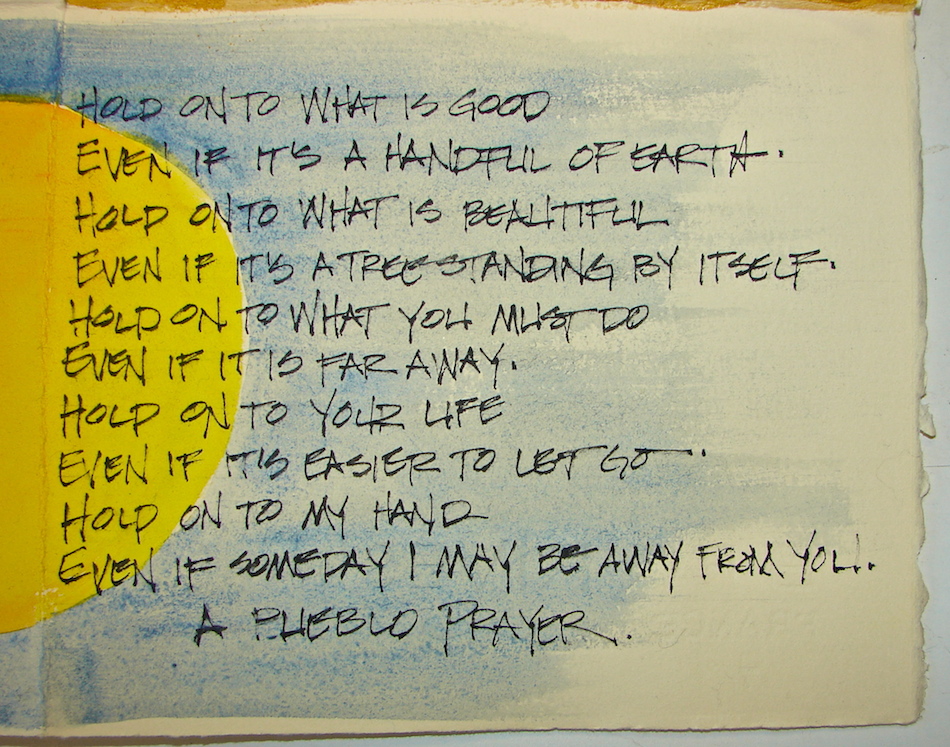 HOLD ON TO WHAT IS GOOD
EVEN IF IT'S A HANDFUL OF EARTH.
HOLD ON TO WHAT IS BEAUTIFUL
EVEN IF IT'S A TREE STANDING BY ITSELF.
HOLD ON TO WHAT YOU MUST DO
EVEN IF IT IS FAR AWAY.
HOLD ON TO YOUR LIFE
EVEN IF IT'S EASIER TO LET GO..
HOLD ON TO MY HAND
EVEN IF SOMEDAY I MAY BE AWAY FROM YOU.
A PUEBLO PRAYER.